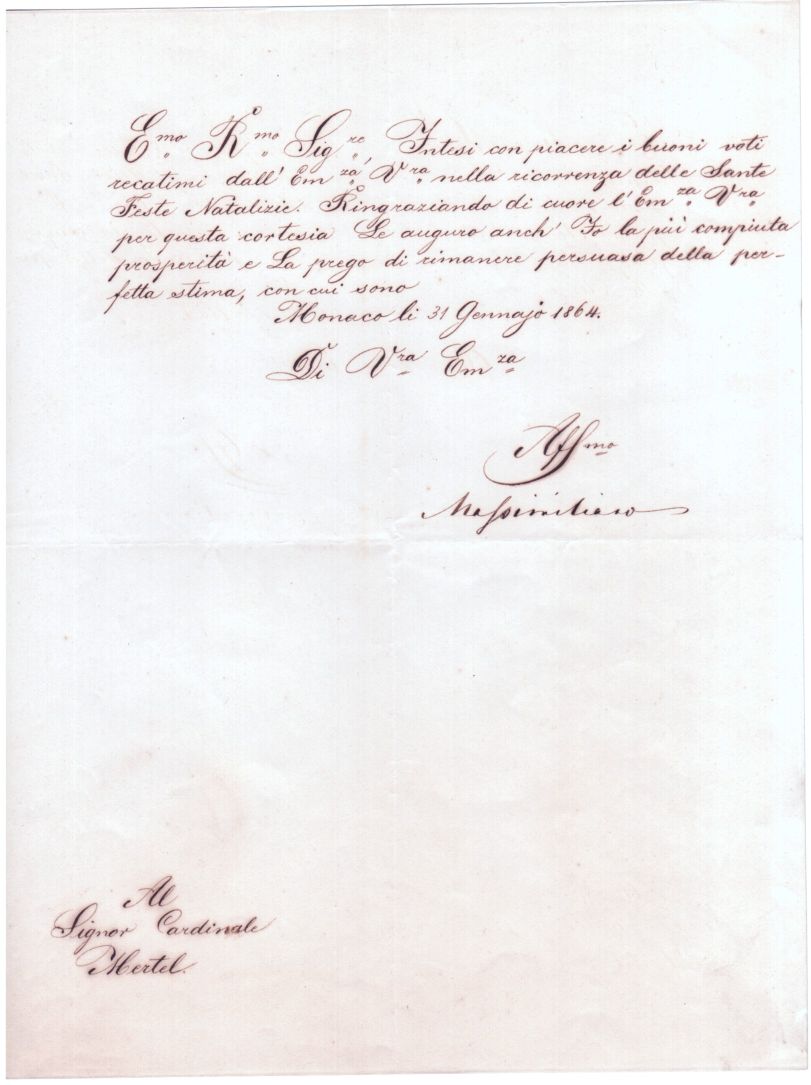 Emo Rmo Sigre, Intesi con piacere i buoni voti
recatimi dall' Emza Vra nella ricorrenza delle Sante
Feste Natalizie. Ringraziando di cuore l'Emza Vra
per questa cortesia Le auguro anch' Io la più compiuta
prosperità e La prego di rimanere persuasa della per-
fetta stima, con cui sono
Monaco li 31 Gennajo 1864.
Di Vra Emza
Affmo
Massimiliano
Al
Signor Cardinale
Mertel.